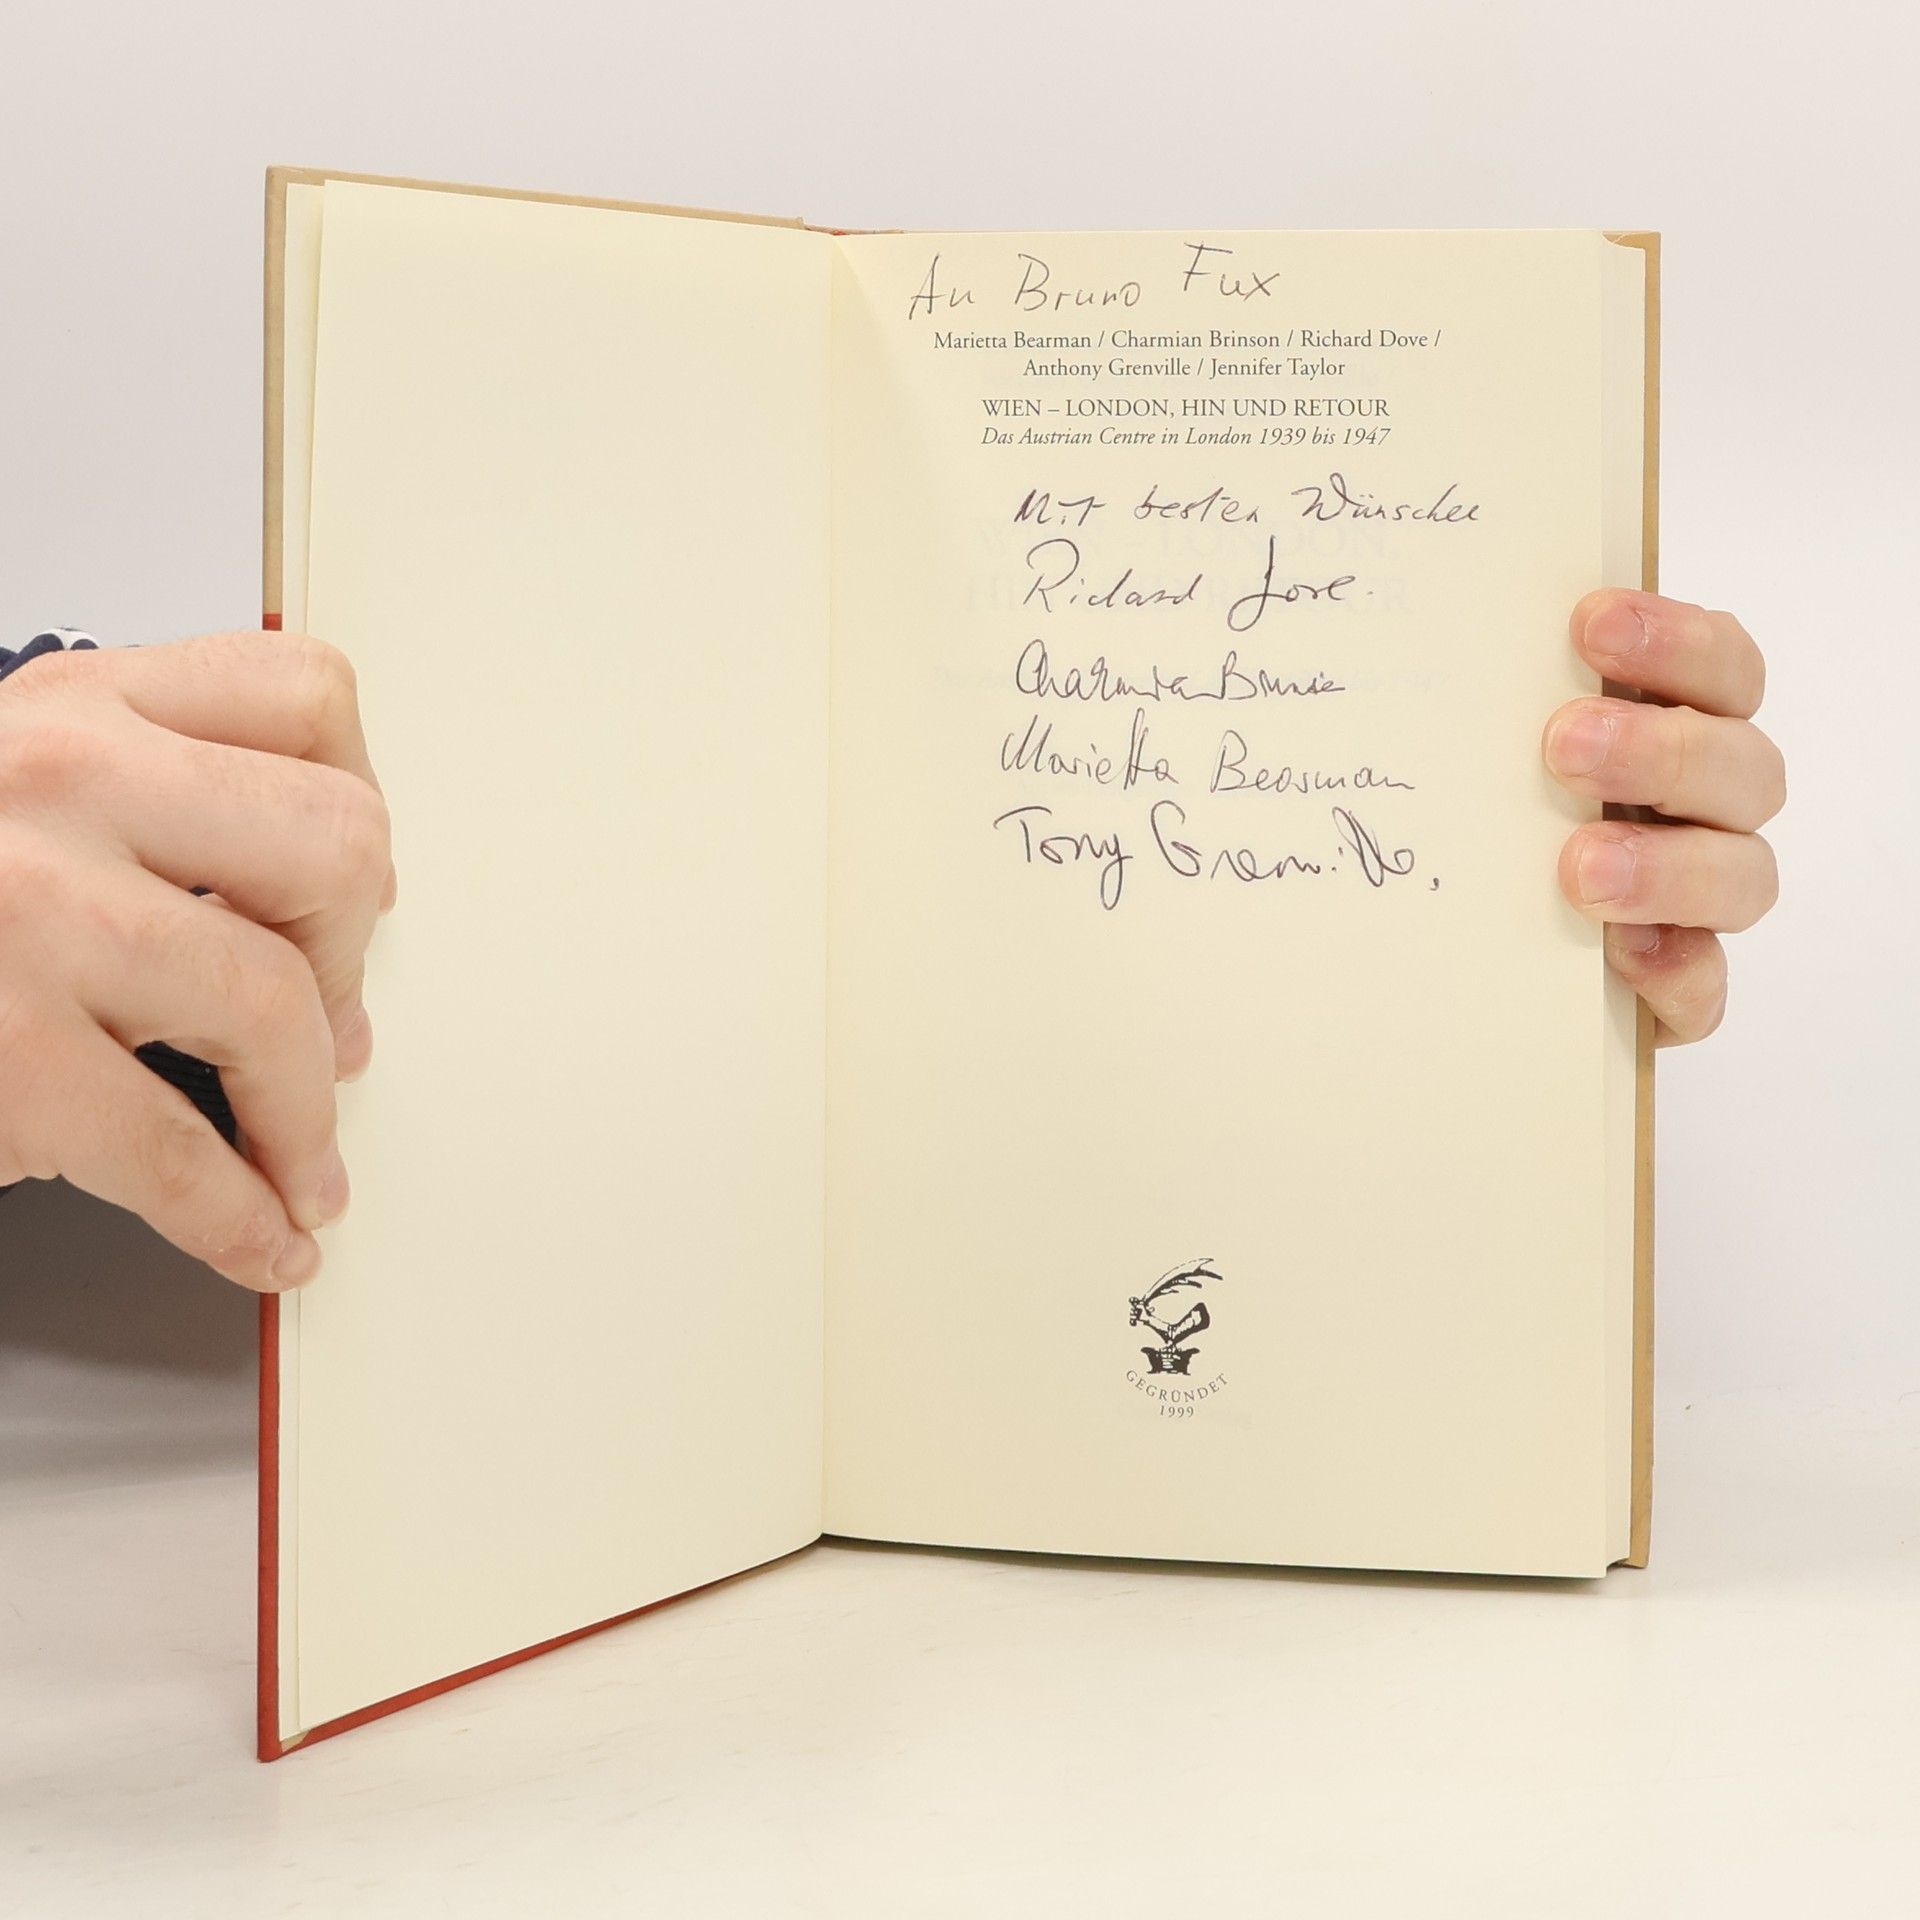 An Bruno Fux
Marietta Bearman / Charmian Brinson / Richard Dove /
Anthony Grenville / Jennifer Taylor
WIEN – LONDON, HIN UND RETOUR
Das Austrian Centre in London 1939 bis 1947
Mit besten Wünschen
Richard Dove.
Charmian Brinson
Marietta Bearman
Tony Grenville,
GEGRÜNDET
1999